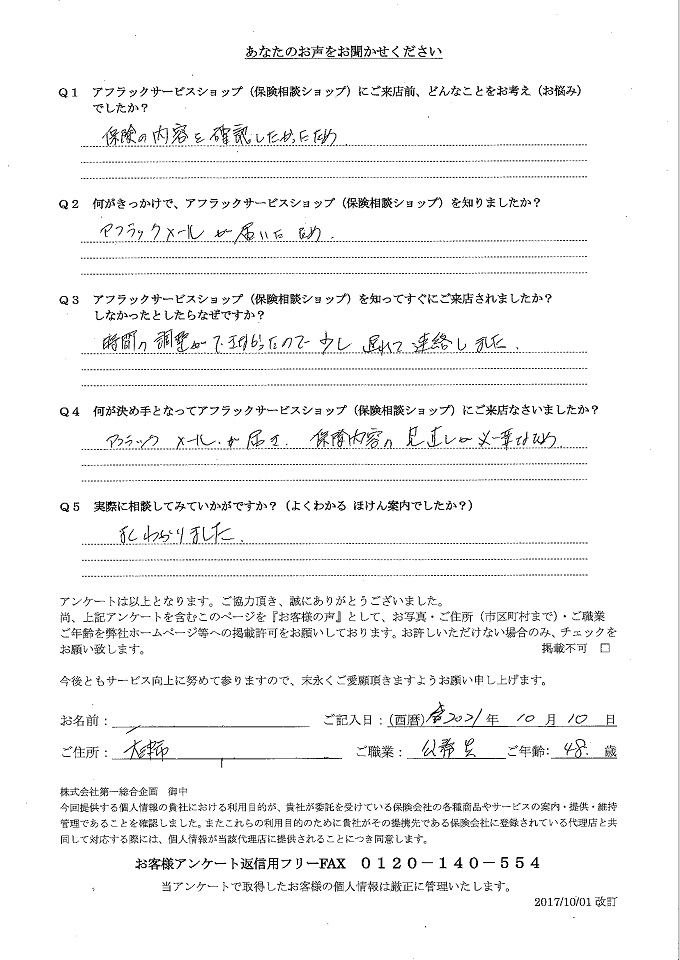 あなたのお声をお聞かせください
Q1 アフラックサービスショップ（保険相談ショップ）にご来店前、どんなことをお考え（お悩み）
でしたか？
保険の内容を確認したかったため
Q2 何がきっかけで、アフラックサービスショップ（保険相談ショップ）を知りましたか？
アフラックメールが届いたため.
Q3 アフラックサービスショップ（保険相談ショップ）を知ってすぐにご来店されましたか？
しなかったとしたらなぜですか？
時間の調整ができなかったので少し遅れて連絡しました.
Q4 何が決め手となってアフラックサービスショップ（保険相談ショップ）にご来店なさいましたか？
アフラック メールが届き. 保障内容の見直しが必要なため.
Q5 実際に相談してみていかがですか？（よくわかる ほけん案内でしたか？）
よくわかりました.
アンケートは以上となります。ご協力頂き、誠にありがとうございました。
尚、上記アンケートを含むこのページを『お客様の声』として、お写真・ご住所（市区町村まで）・ご職業
ご年齢を弊社ホームページ等への掲載許可をお願いしております。お許しいただけない場合のみ、チェックを
お願い致します。 掲載不可 □
今後ともサービス向上に努めて参りますので、末永くご愛顧頂きますようお願い申し上げます。
お名前： ご記入日：（西暦）2021年 10月10日
ご住所： ご職業： 公務員 ご年齢： 48. 歳
株式会社第一総合企画 御中
今回提供する個人情報の貴社における利用目的が、貴社が委託を受けている保険会社の各種商品やサービスの案内・提供・維持
管理であることを確認しました。またこれらの利用目的のために貴社がその提携先である保険会社に登録されている代理店と共
同して対応する際には、個人情報が当該代理店に提供されることにつき同意します。
お客様アンケート返信用フリーFAX 0120－140－554
当アンケートで取得したお客様の個人情報は厳正に管理いたします。
2017/10/01 改訂